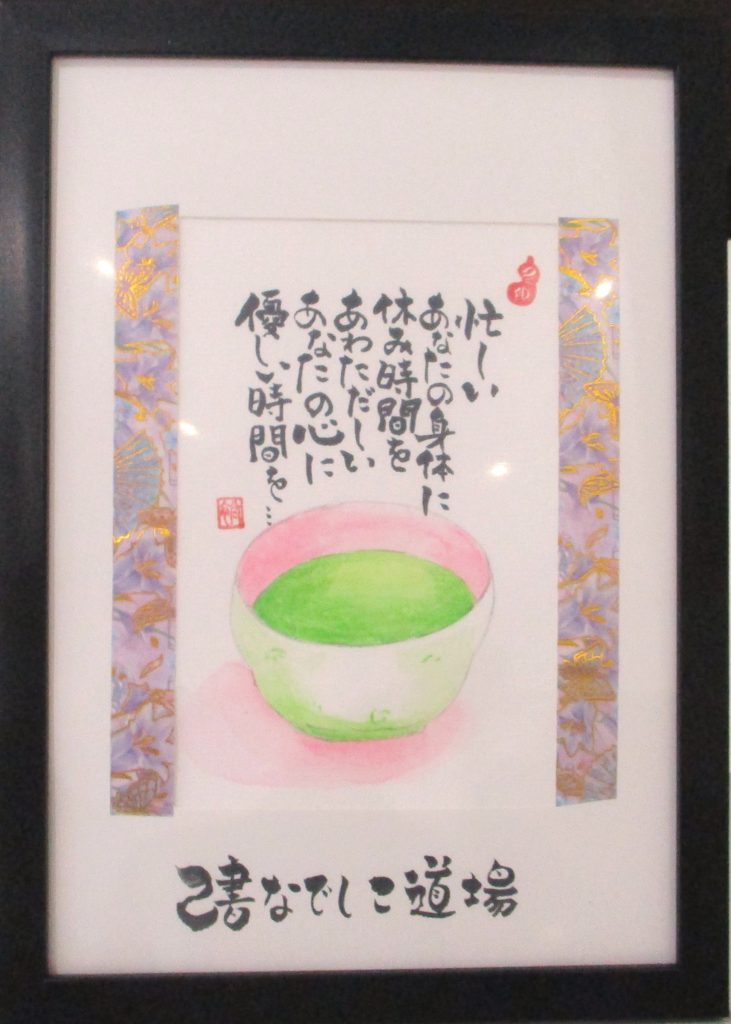 忙しい
あなたの身体に
休み時間を
あわただしい
あなたの心に
優しい時間を…
己書なでしこ道場